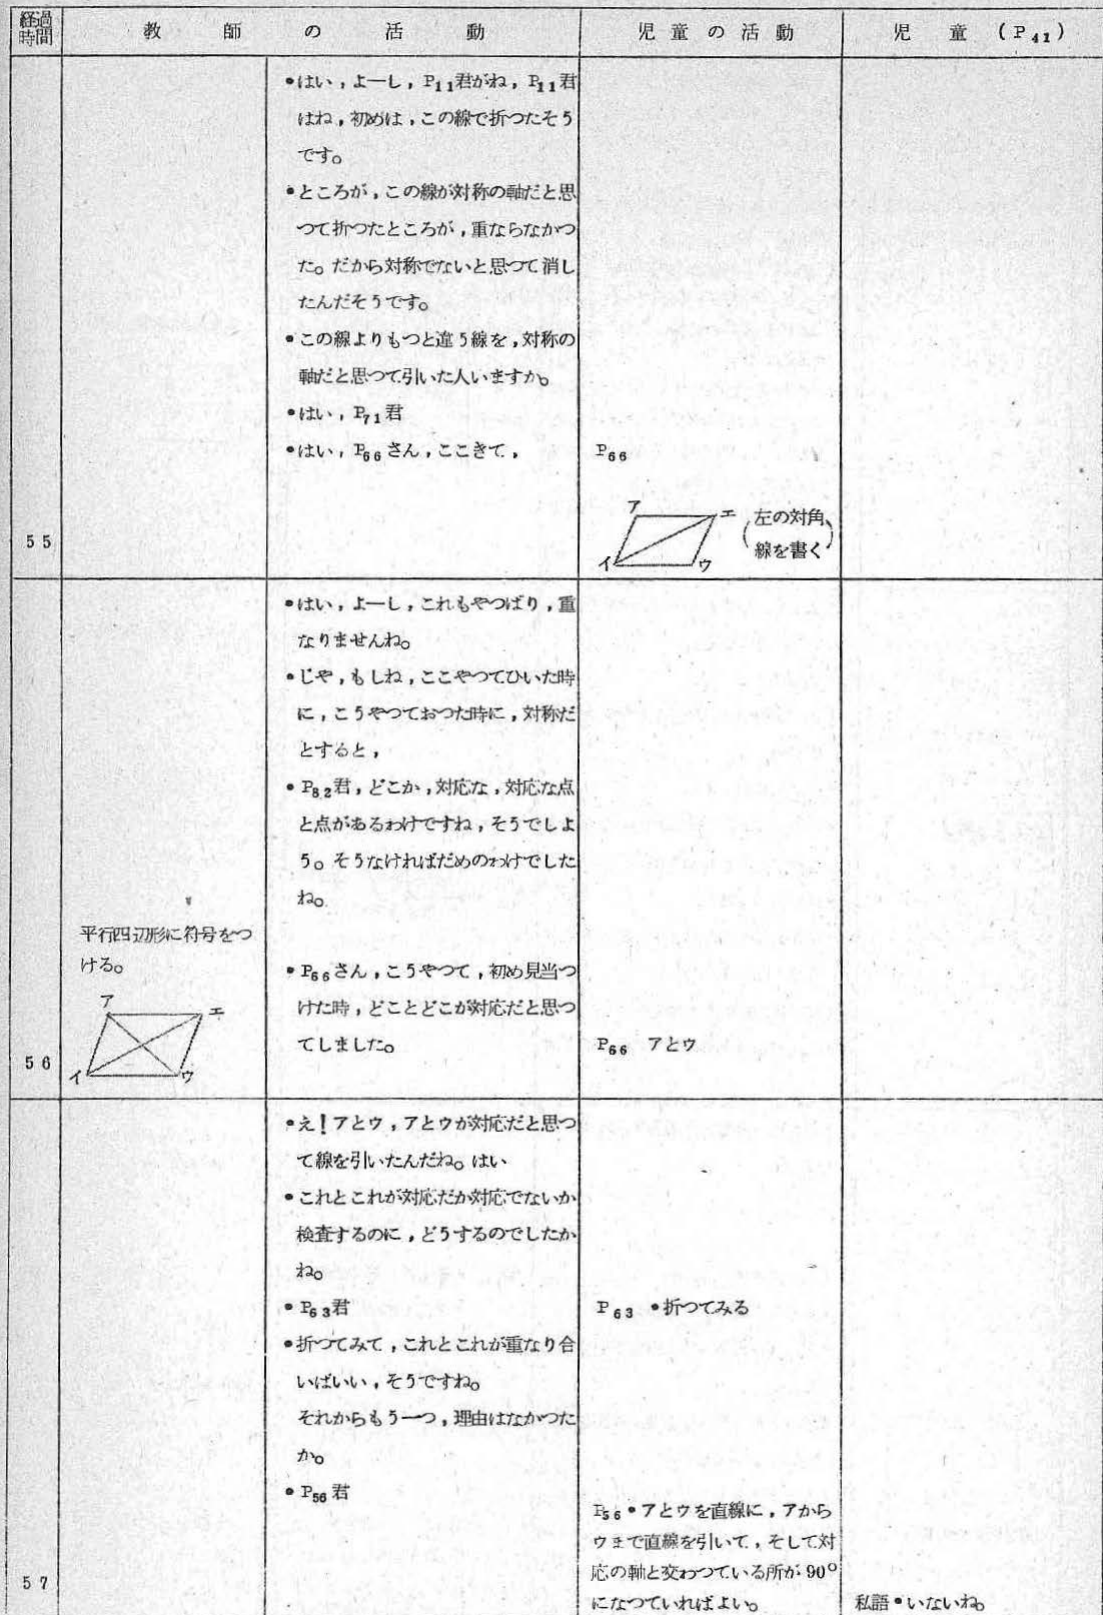 経過時間 教師の活動 児童の活動 児童（P₄₁）
•はい，よーし，P₁₁君がね，P₁₁君
はね，初めは，この線で折つたそう
です。
•ところが，この線が対称の軸だと思
つて折つたところが，重ならなかつ
た。だから対称でないと思つて消し
たんだそうです。
•この線よりもつと違う線を，対称の
軸だと思つて引いた人いますか。
•はい，P₇₁君
•はい，P₆₆さん，ここきて，
P₆₆
ア エ イ ウ
（左の対角
線を書く）
55
•はい，よーし，これもやつぱり，重
なりませんね。
•じや，もしね，ここやつてひいた時
に，こうやつておつた時に，対称だ
とすると，
•P₈₂君，どこか，対応な，対応な点
と点があるわけですね，そうでしよ
う。そうなければだめのわけでした
ね。
平行四辺形に符号をつ
ける。
ア エ イ ウ
•P₆₆さん，こうやつて，初め見当つ
けた時，どことどこが対応だと思つ
てしました。
P₆₆ アとウ
56
•え！アとウ，アとウが対応だと思つ
て線を引いたんだね。はい
•これとこれが対応だか対応でないか
検査するのに，どうするのでしたか
ね。
•P₆₃君
P₆₃ •折つてみる
•折つてみて，これとこれが重なり合
いばいい，そうですね。
それからもう一つ，理由はなかつた
か。
•P₅₆君
P₅₆•アとウを直線に，アから
ウまで直線を引いて，そして対
応の軸と交わつている所が90°
になつていればよい。
私語•いないね。
57